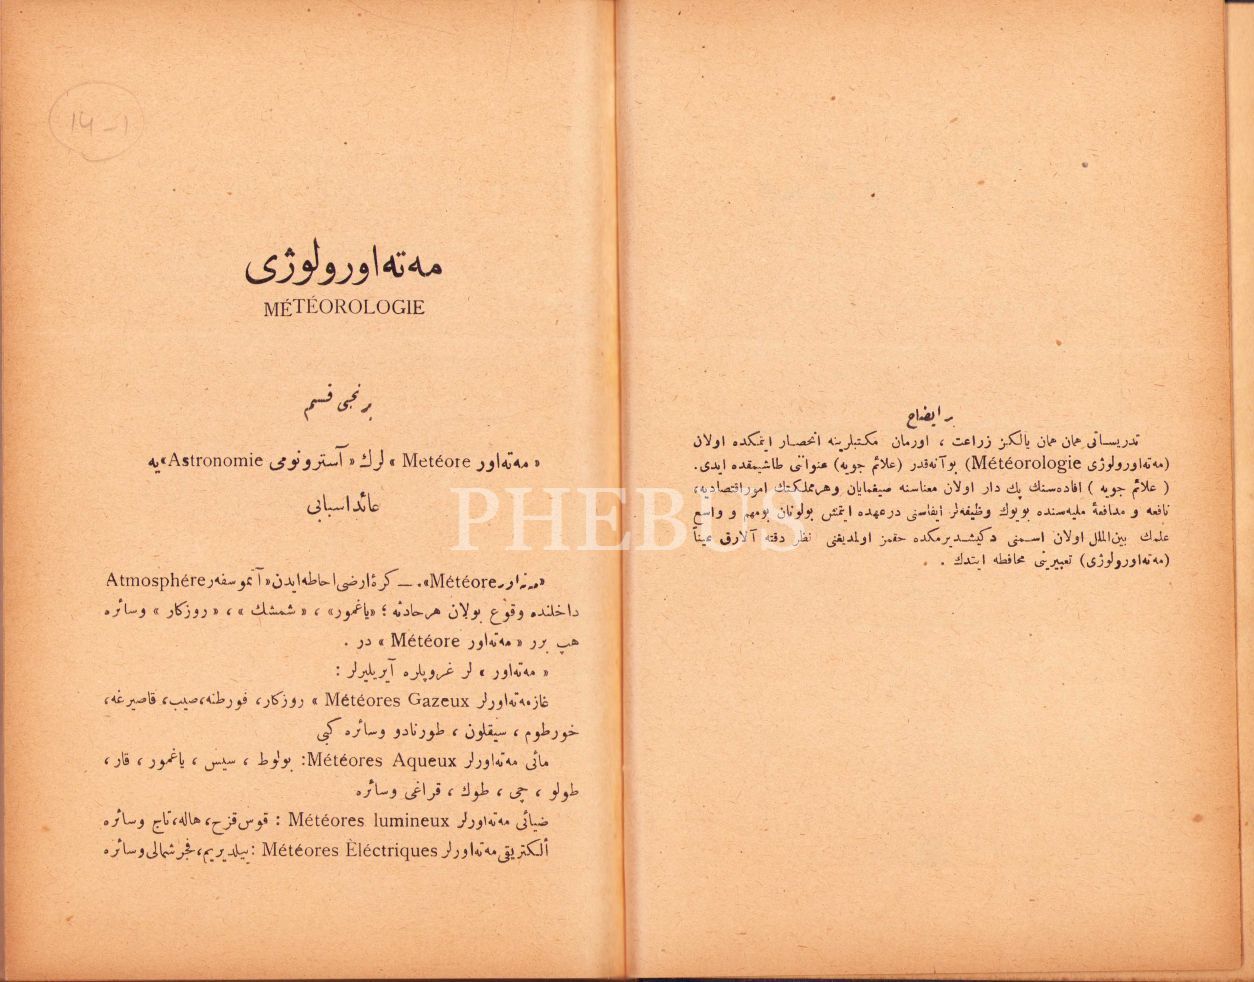 بر ایضاح
تدریساتی همان همان یالکز زراعت ، اورمان مکتبلرینه انحصار ایتمکده اولان
(مه‌ته‌اورولوژی Météorologie) بوآنه‌قدر (علائم جویه) عنوانی طاشیمقده ایدی.
( علائم جویه ) افاده‌سنك پك دار اولان معناسنه صیغمایان وهر مملکتك امور اقتصادیه،
نافعه و مدافعهٔ ملیه‌سنده بویوك وظیفه‌لر ایفاسنی درعهده ایتمش بولونان بومهم و واسع
علمك بین‌الملل اولان اسمنی دکیشدیرمکده حقمز اولمدیغنی نظر دقته آلارق عیناً
(مه‌ته‌اورولوژی) تعبیرینی محافظه ایتدك .
14-1
مه‌ته‌اورولوژی
MÉTÉOROLOGIE
برنجی قسم
« مه‌ته‌اور Metéore » لرك « آسترونومی Astronomie»یه
عائد اسبابی
«مه‌ته‌اور Météore». — کرهٔ ارضی احاطه ایدن « آتموسفه‌ر Atmosphére
داخلنده وقوع بولان هر حادثه ؛ «یاغمور» ، « شمشك » ، « روزکار » وسائره
هپ برر « مه‌ته‌اور Météore » در .
« مه‌ته‌اور » لر غروپلره آیریلیرلر :
غازمه‌ته‌اورلر Météores Gazeux » روزکار، فورطنه، صیب، قاصیرغه،
خورطوم ، سیقلون ، طورنادو وسائره کبی
مائی مه‌ته‌اورلر Météores Aqueux: بولوط ، سیس ، یاغمور ، قار،
طولو ، چی ، طوك ، قراغی وسائره
ضیائی مه‌ته‌اورلر Météores lumineux : قوس قزح، هاله، تاج وسائره
ألکتریقی مه‌ته‌اورلر Météores Èléctriques :ییلدیریم، فجر شمالی وسائره
PHEBUS